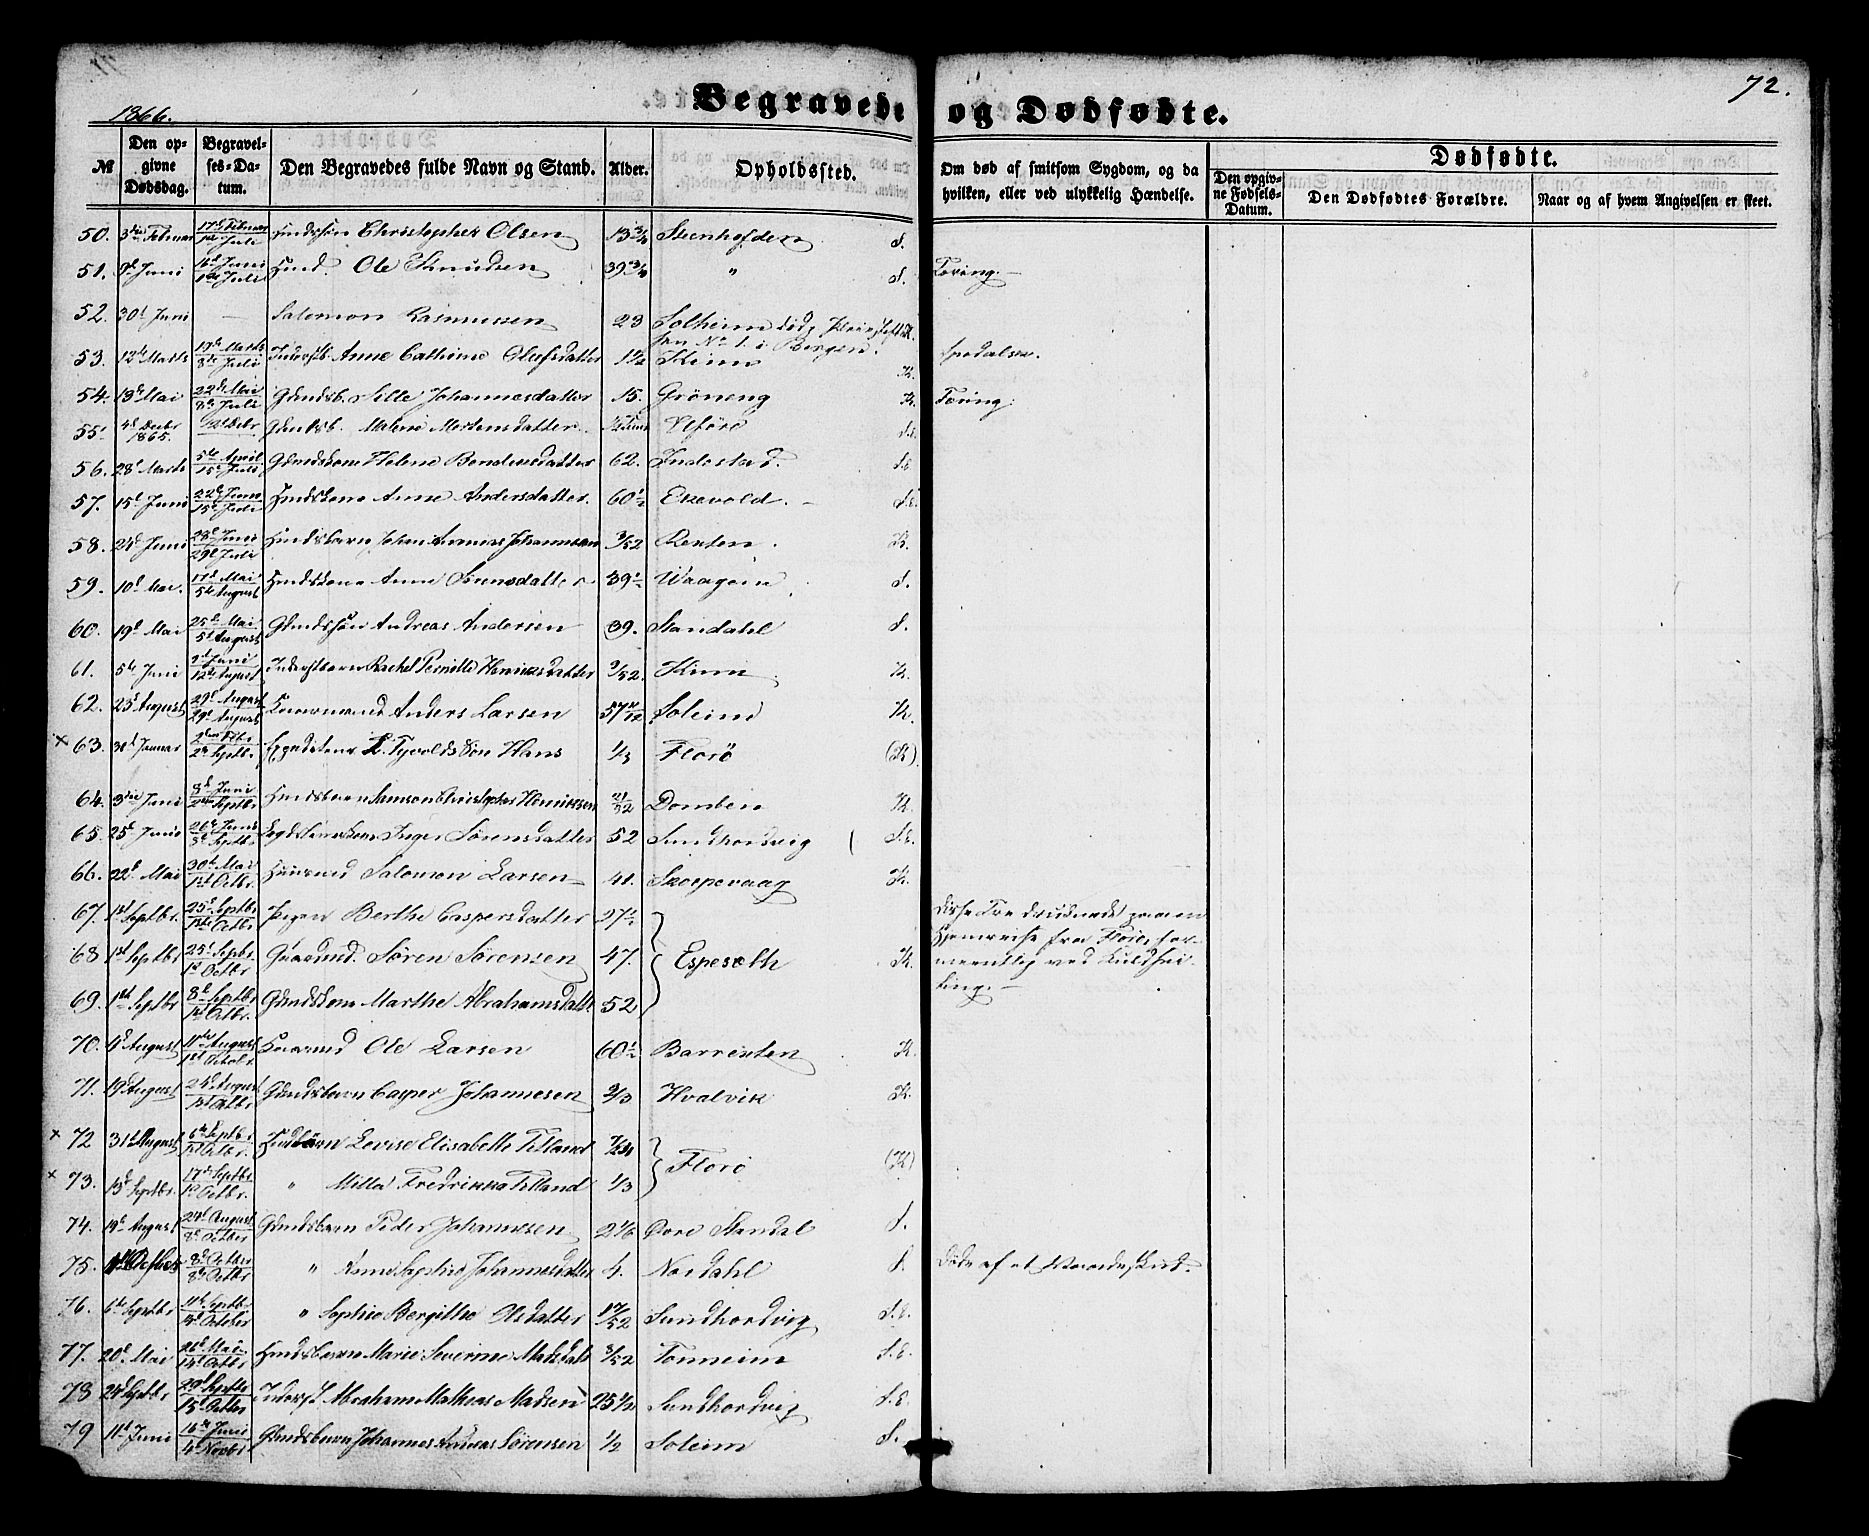 72.
1866.
Begravede og Dødfødte.
№
Den opgivne Dødsdag.
Begravelses-Datum.
Den Begravedes fulde Navn og Stand.
Alder.
Opholdssted.
Om død af smitsom Sygdom, og da hvilken, eller ved ulykkelig Hændelse.
Dødfødte.
Den opgivne Fødsels-Datum.
Den Dødfødtes Forældre.
Naar og af hvem Angivelsen er skeet.
50. 3die Februar 17d Februar 1ste Juli Christopher Olsen 13 3/4 Steenhofden S.
51. 9d Juni 16d Juni 1ste Juli Ole Knudsen 39 3/4 " S. Tæring.
52. 30d Juni — Salomon Rasmussen 23 Solheim
No 1. i Bergen.
53. 12te Marts 19de Marts 8de Juli Anne Cathrine Olufsdatter 1 1/2 Kinn K. spedalsk.
54. 13de Mai 22de Mai 8de Juli Gmdsb. Sille Johannesdatter 15. Grøneng K. Tæring
55. 4d Decbr 1865. Gmdsb. Malene Mortensdatter S.E.
56. 28d Marts 5te April 15d Juli Gmdskone Helene Bendixdatter 62. Indrestad S.E
57. 15d Juni 22d Juni 15d Juli Hmdskone Anne Andersdatter. 60 1/2 Ekevold. S.E.
58. 24d Juni 28d Juni 29d Juli Hmdsbarn Johan Johannessen 3/52 Reksten. K.
59. 10d Mai. 17d Mai 5te August Hmdskone Anne 39 1/2 Waagene S.
60. 19d Mai 25d Mai 5d August Gmdssøn Andreas Andersen 39. Standahl S.
61. 5te Juni 9d Juni 12te August Inderstbarn Rachel Pernille Henriksdatter 9/52 Kinn K.
62. 23d August 29d August 29d August Kaarmand Anders Larsen 57 Soleim K.
× 63. 31d Januar 2den Septbr. Søn Hans 1/3 Florø (K).
64. 3die Juni 8d Juni 2den Septbr. Hmdsbarn Samson Christopher Henriksen 21/52 Domben K.
65. 25d Juni 26d Juni Septbr Inger Sørensdatter 52 Sundhordvig S.E.
66. 22d Mai 30te Mai 1st Octbr. Salomon Larsen 41. Skorpevaag K.
67. 1st Septbr. 25d Septbr. 1ste Octbr. Pigen Berthe Caspersdatter 27 1/2 Disse Tre druknede paa en
Hjemreise fra Florø, for-
68 1st Septbr. 25d Septbr. 1st Octbr Gaardmd. Søren Sørensen 47. Espeseth K. mentlig ved Kuldsei-
69. 1st Septbr 8d Septbr 1st Octbr. Gmdskone Marthe Abrahamsdatt. 52 ling.
70. 4d August 11te August 1st Octobr Kaarmd Ole Larsen 60 1/2 Barreksten K.
71. 19d August 24d August 1st Octbr. Gmdsbarn Casper Johannesen 2/3 Hvalvik K.
× 72 31d August 6te Septbr. 1st Octbr. Levise Elisabeth Tetland Florø (K)
× 73. 13d Septbr. 17de Septbr 1st Octbr. " Milla Fredrikka Tetland 1/3
74. 19de August 24d August 8d Octbr Gmdsbarn Peder Johannesen 2 1/6 Øvre Standal S.
75. 8d Octbr 8d Octbr " Anne Sophie Johannesdatter 4. Nordahl S. Døde af et Vaadeskud.
76. 6te Septbr 11te Septbr 14d October " Sophie Bergitthe Olsdatter 17/52 Sundhordvig S.E.
77. 20d Mai 26d Mai. 14d Octbr Hmdsbarn Marie Severine Madsdatt 3/52 Tonheim S.E.
78 24d Septbr 29d Septbr 15d Octbr Inderst. Abraham Mathias Madsen 25 1/2 Sundhordvig S.E.
79 11d Juni 16de Juni 4d Novbr. Gmdsbarn Johannes Andreas Sørensen 1/2 Soleim S.